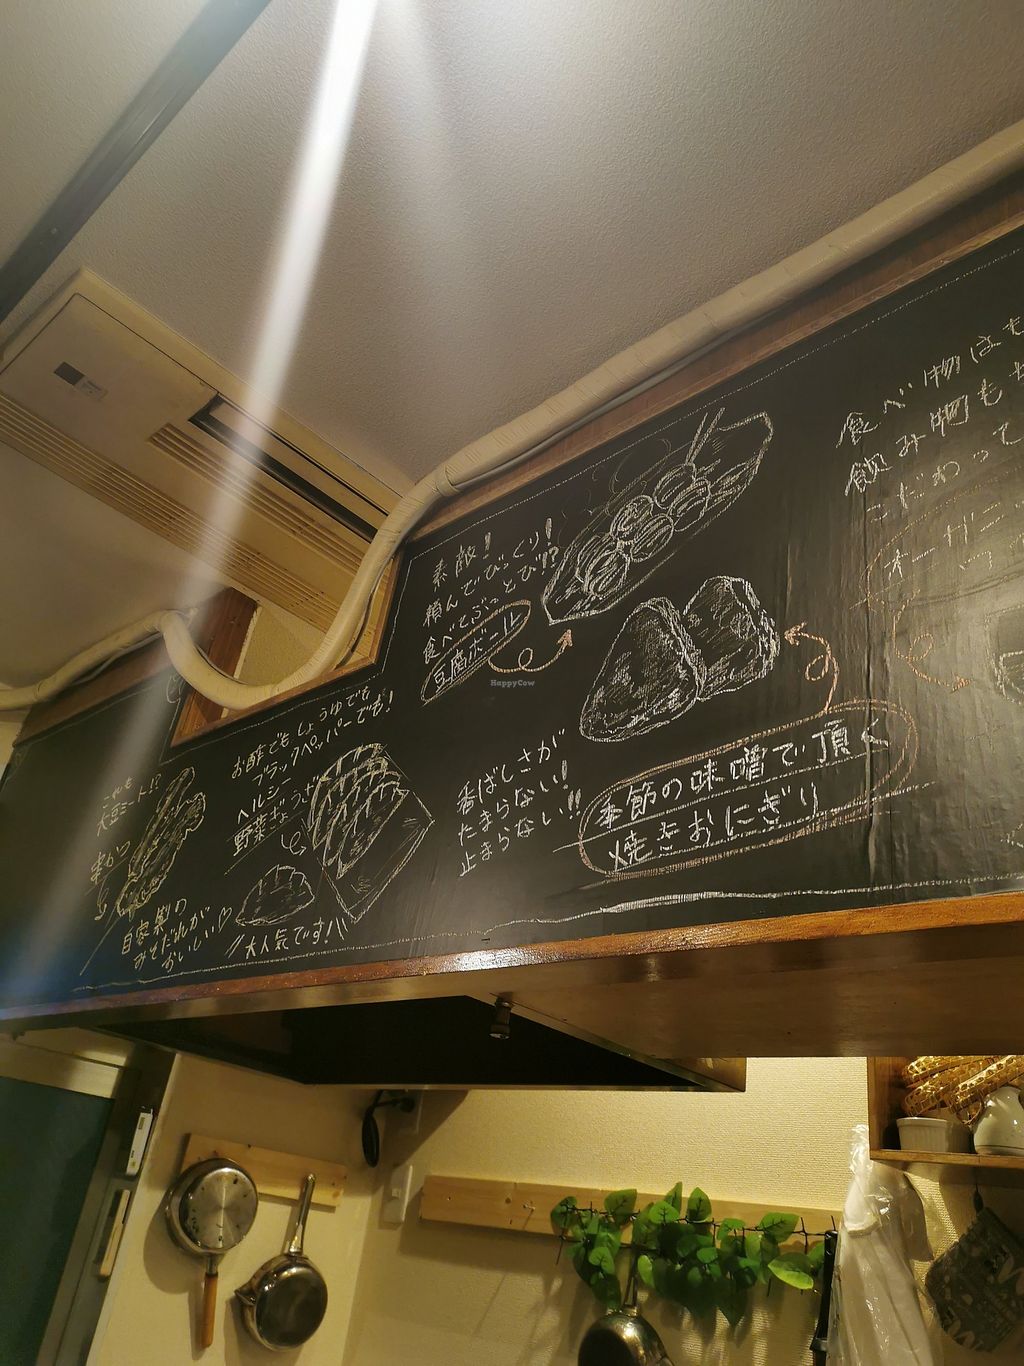 これも
大豆ミート!?
串かつ
自家製の
みそだれが
おいしい♡
お酢でもしょうゆでも
ブラックペッパーでも!
ヘルシー
野菜ぎょうざ
大人気です!
素敵!
頼んでびっくり!
食べてぶっとび!?
豆腐ボール
HappyCow
香ばしさが
たまらない!
止まらない!!
季節の味噌で頂く
焼きおにぎり
食べ物はも
飲み物も
こだわって
オーガニッ